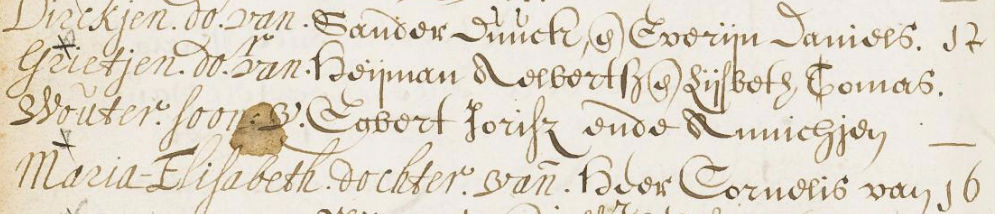 Dirckjen. do. van. Sander Duuck, en Everijn Daniels. 12
Grietjen. do. van. Heijman Aelbertsz en Lijsbeth Tomas.
Wouter. soon. v. Egbert Jorisz ende Annichjen
Maria-Elisabeth. dochter. van. Heer Cornelis van 16